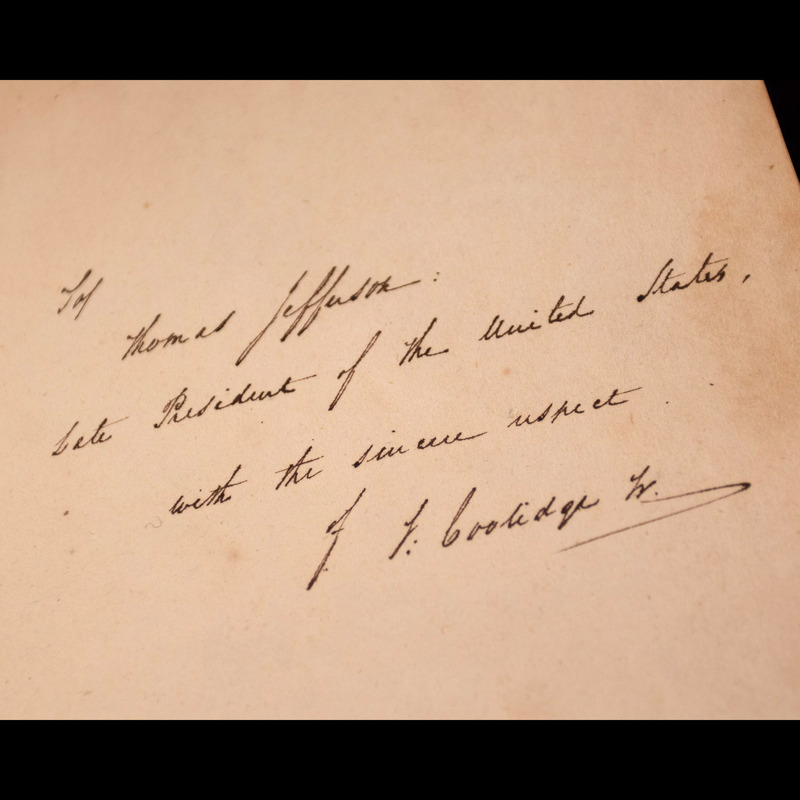 To
Thomas Jefferson:
Late President of the United States,
with the sincere respect
of J: Coolidge Jr.